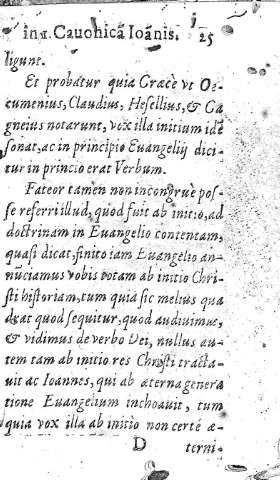 in 1. Cauonicā Ioānis. 25
ligunt.
Et probatur quia Græcè vt Oe-
cumenius, Claudius, Hesellius, & Ga
gneius notarunt, vox illa initium idē
sonat, ac in principio Euangelij dici-
tur in princio erat Verbum.
Fateor tamen non incongruè pos-
se referri illud, quod fuit ab initio, ad
doctrinam in Euangelio contentam,
quasi dicat, finito iam Euangelio an-
nūciamus vobis totam ab initio Chri-
sti historiam, tum quia sic melius qua
drat quod sequitur, quod audiuimus,
& vidimus de verbo Dei, nullus au-
tem tam ab initio res Christi tracta-
uit ac Ioannes, qui ab æterna genera
tione Euangelium inchoauit, tum
quia vox illa ab initio non certé æ-
D terni-